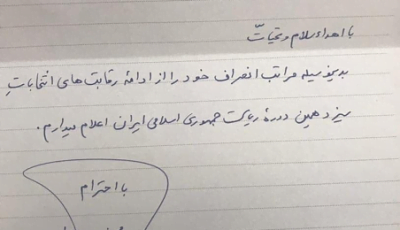 با اهداء سلام و تحیّات
بدینوسیله مراتب انصراف خود را از ادامهٔ رقابت های انتخابات
سیزدهمین دورهٔ ریاست جمهوری اسلامی ایران اعلام میدارم.
با احترام